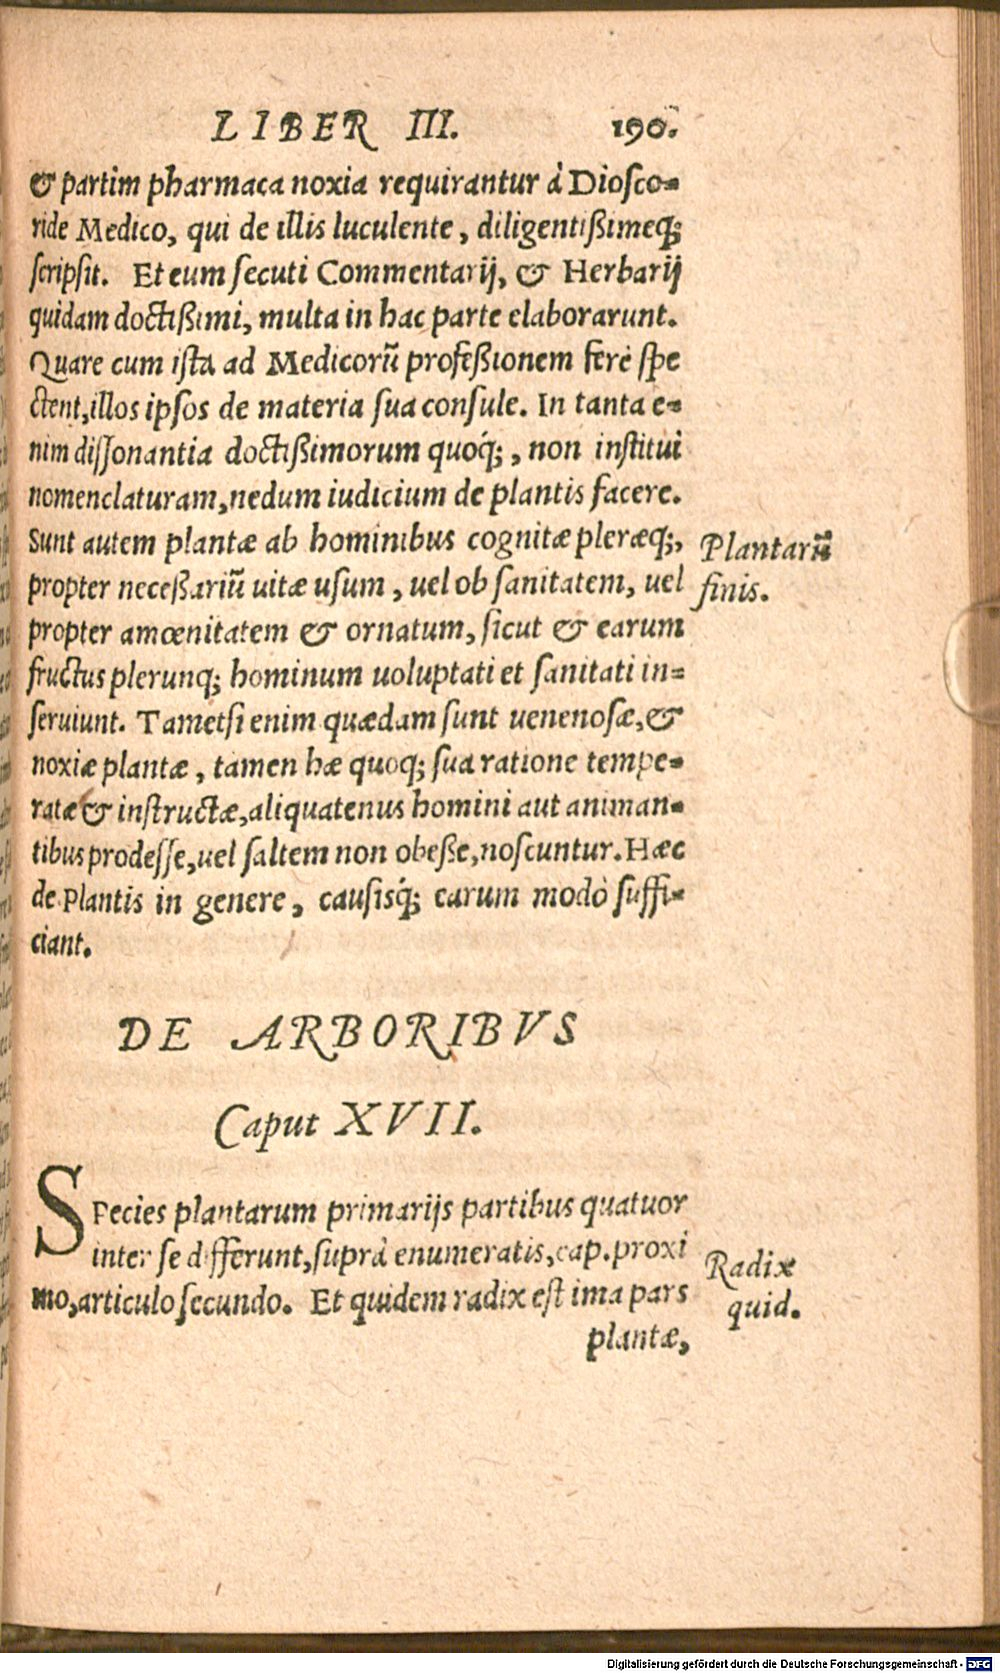 LIBER III. 190.
& partim pharmaca noxia requirantur à Diosco=
ride Medico, qui de illis luculente, diligentißimeq́;
scripsit. Et eum secuti Commentarij, & Herbarij
quidam doctißimi, multa in hac parte elaborarunt.
Quare cum ista ad Medicorũ profeßionem ferè spe
ctent, illos ipsos de materia sua consule. In tanta e=
nim dissonantia doctißimorum quoq́;, non institui
nomenclaturam, nedum iudicium de plantis facere.
Sunt autem plantæ ab hominibus cognitæ pleræq;,
Plantarũ
propter neceßariũ uitæ usum, uel ob sanitatem, uel
finis.
propter amœnitatem & ornatum, sicut & earum
fructus plerunq; hominum uoluptati et sanitati in=
seruiunt. Tametsi enim quædam sunt uenenosæ, &
noxiæ plantæ, tamen hæ quoq; sua ratione tempe=
ratæ & instructæ, aliquatenus homini aut animan=
tibus prodesse, uel saltem non obeße, noscuntur. Hæc
de Plantis in genere, causisq́; earum modò suffi=
ciant.
DE ARBORIBVS
Caput XVII.
SPecies plantarum primarijs partibus quatuor
inter se differunt, suprà enumeratis, cap. proxi
Radix
mo, articulo secundo. Et quidem radix est ima pars
quid.
plantæ,
Digitalisierung gefördert durch die Deutsche Forschungsgemeinschaft - DFG